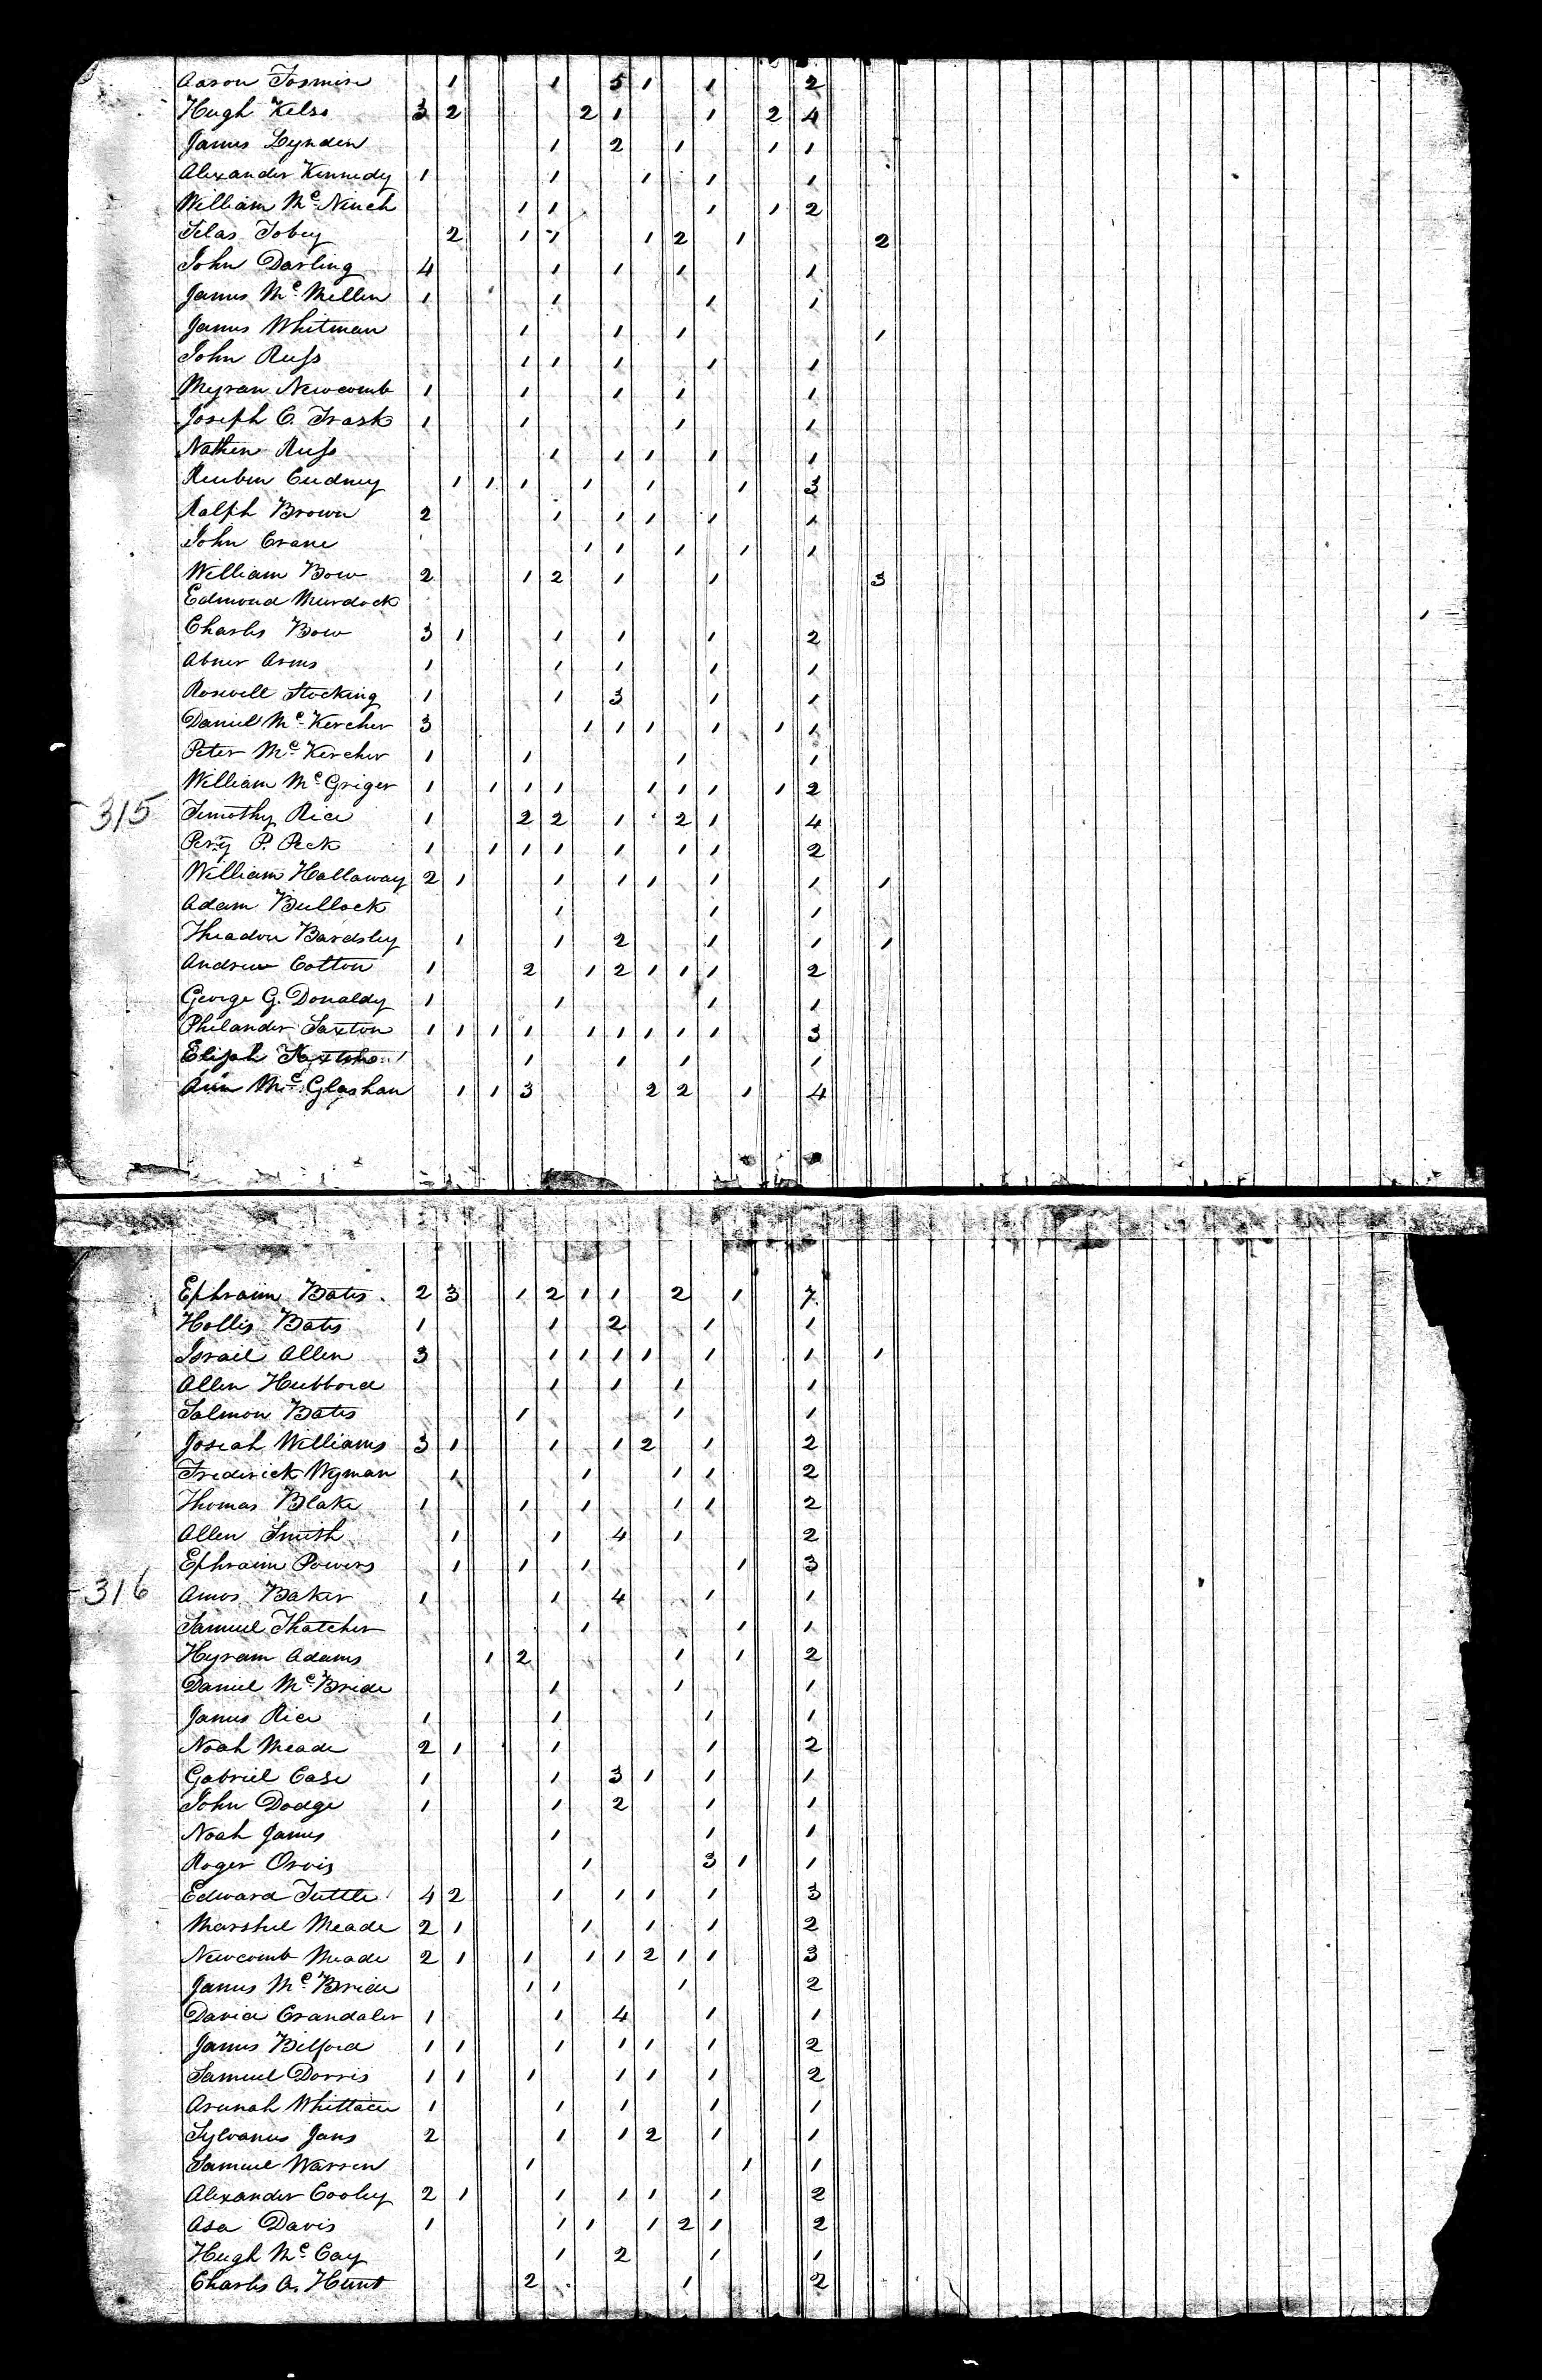 Aaron 1 1 5 1 1 2
Hugh Kelso 3 2 2 1 1 2 4
James Lynden 1 2 1 1 1
Alexander Kennedy 1 1 1 1 1
William Mc Ninch 1 1 1 1 2
Silas Tobey 2 1 1 1 2 1 2
John Darling 4 1 1 1 1
James Mc Mellen 1 1 1 1
James Whitman 1 1 1 1
John Russ 1 1 1 1 1
Myran Newcomb 1 1 1 1 1
Joseph C. Trask 1 1 1 1
Nathen Russ 1 1 1 1 1
Reuben Cudney 1 1 1 1 1 1 3
Ralph Brown 2 1 1 1 1 1
John Crane 1 1 1 1 1
William Bow 2 1 2 1 1 3
Edmond Murdock 1
Charles Bow 3 1 1 1 1 2
Abner Arms 1 1 1 1 1
Roswell Stocking 1 1 3 1 1
Daniel Mc Kercher 3 1 1 1 1 1 1
Peter Mc Kercher 1 1 1 1
William Mc Griger 1 1 1 1 1 1 1 1 2
315 Timothy Rice 1 2 2 1 2 1 4
P. Peck 1 1 1 1 1 1 1 2
William Hallaway 2 1 1 1 1 1 1 1
Adam Bullock 1 1 1
Theadore Bardsley 1 1 2 1 1 1
Andrew Cotton 1 2 1 2 1 1 1 2
George G. Donaldy 1 1 1 1
Philander Saxton 1 1 1 1 1 1 1 1 1 3
Elijah 1 1 1 1
Ann Mc Glashan 1 1 3 2 2 1 4
Ephraim Bates 2 3 1 2 1 1 2 1 7
Hollis Bates 1 1 2 1 1
Israel Allen 3 1 1 1 1 1 1 1
Allen Hubbord 1 1 1 1
Salmon Bates 1 1 1
Josiah Williams 3 1 1 1 2 1 2
Frederick Wyman 1 1 1 1 2
Thomas Blake 1 1 1 1 1 2
Allen Smith 1 1 4 1 2
Ephraim Powers 1 1 1 1 3
316 Amos Baker 1 1 4 1 1
Samuel Thatcher 1 1 1
Hyram Adams 1 2 1 1 2
Daniel Mc Bride 1 1 1
James Rice 1 1 1 1
Noah Meade 2 1 1 1 2
Gabriel Case 1 1 3 1 1 1
John Dodge 1 1 2 1 1
Noah James 1 1 1
Roger Orvis 1 3 1 1
Edward Tuttle 4 2 1 1 1 1 3
Marshel Meade 2 1 1 1 1 2
Newcomb Meade 2 1 1 1 1 2 1 1 3
James Mc Bride 1 1 1 2
David Crandaler 1 1 4 1 1
James Bilford 1 1 1 1 1 1 2
Samuel Dorris 1 1 1 1 1 1 2
Arunah Whittacer 1 1 1 1 1
Sylvanus Jans 2 1 1 2 1 1
Samuel Warren 1 1 1
Alexander Cooley 2 1 1 1 1 1 2
Asa Davis 1 1 1 1 2 1 2
Hugh Mc Cay 1 2 1 1
Charles A. Hunt 2 1 2